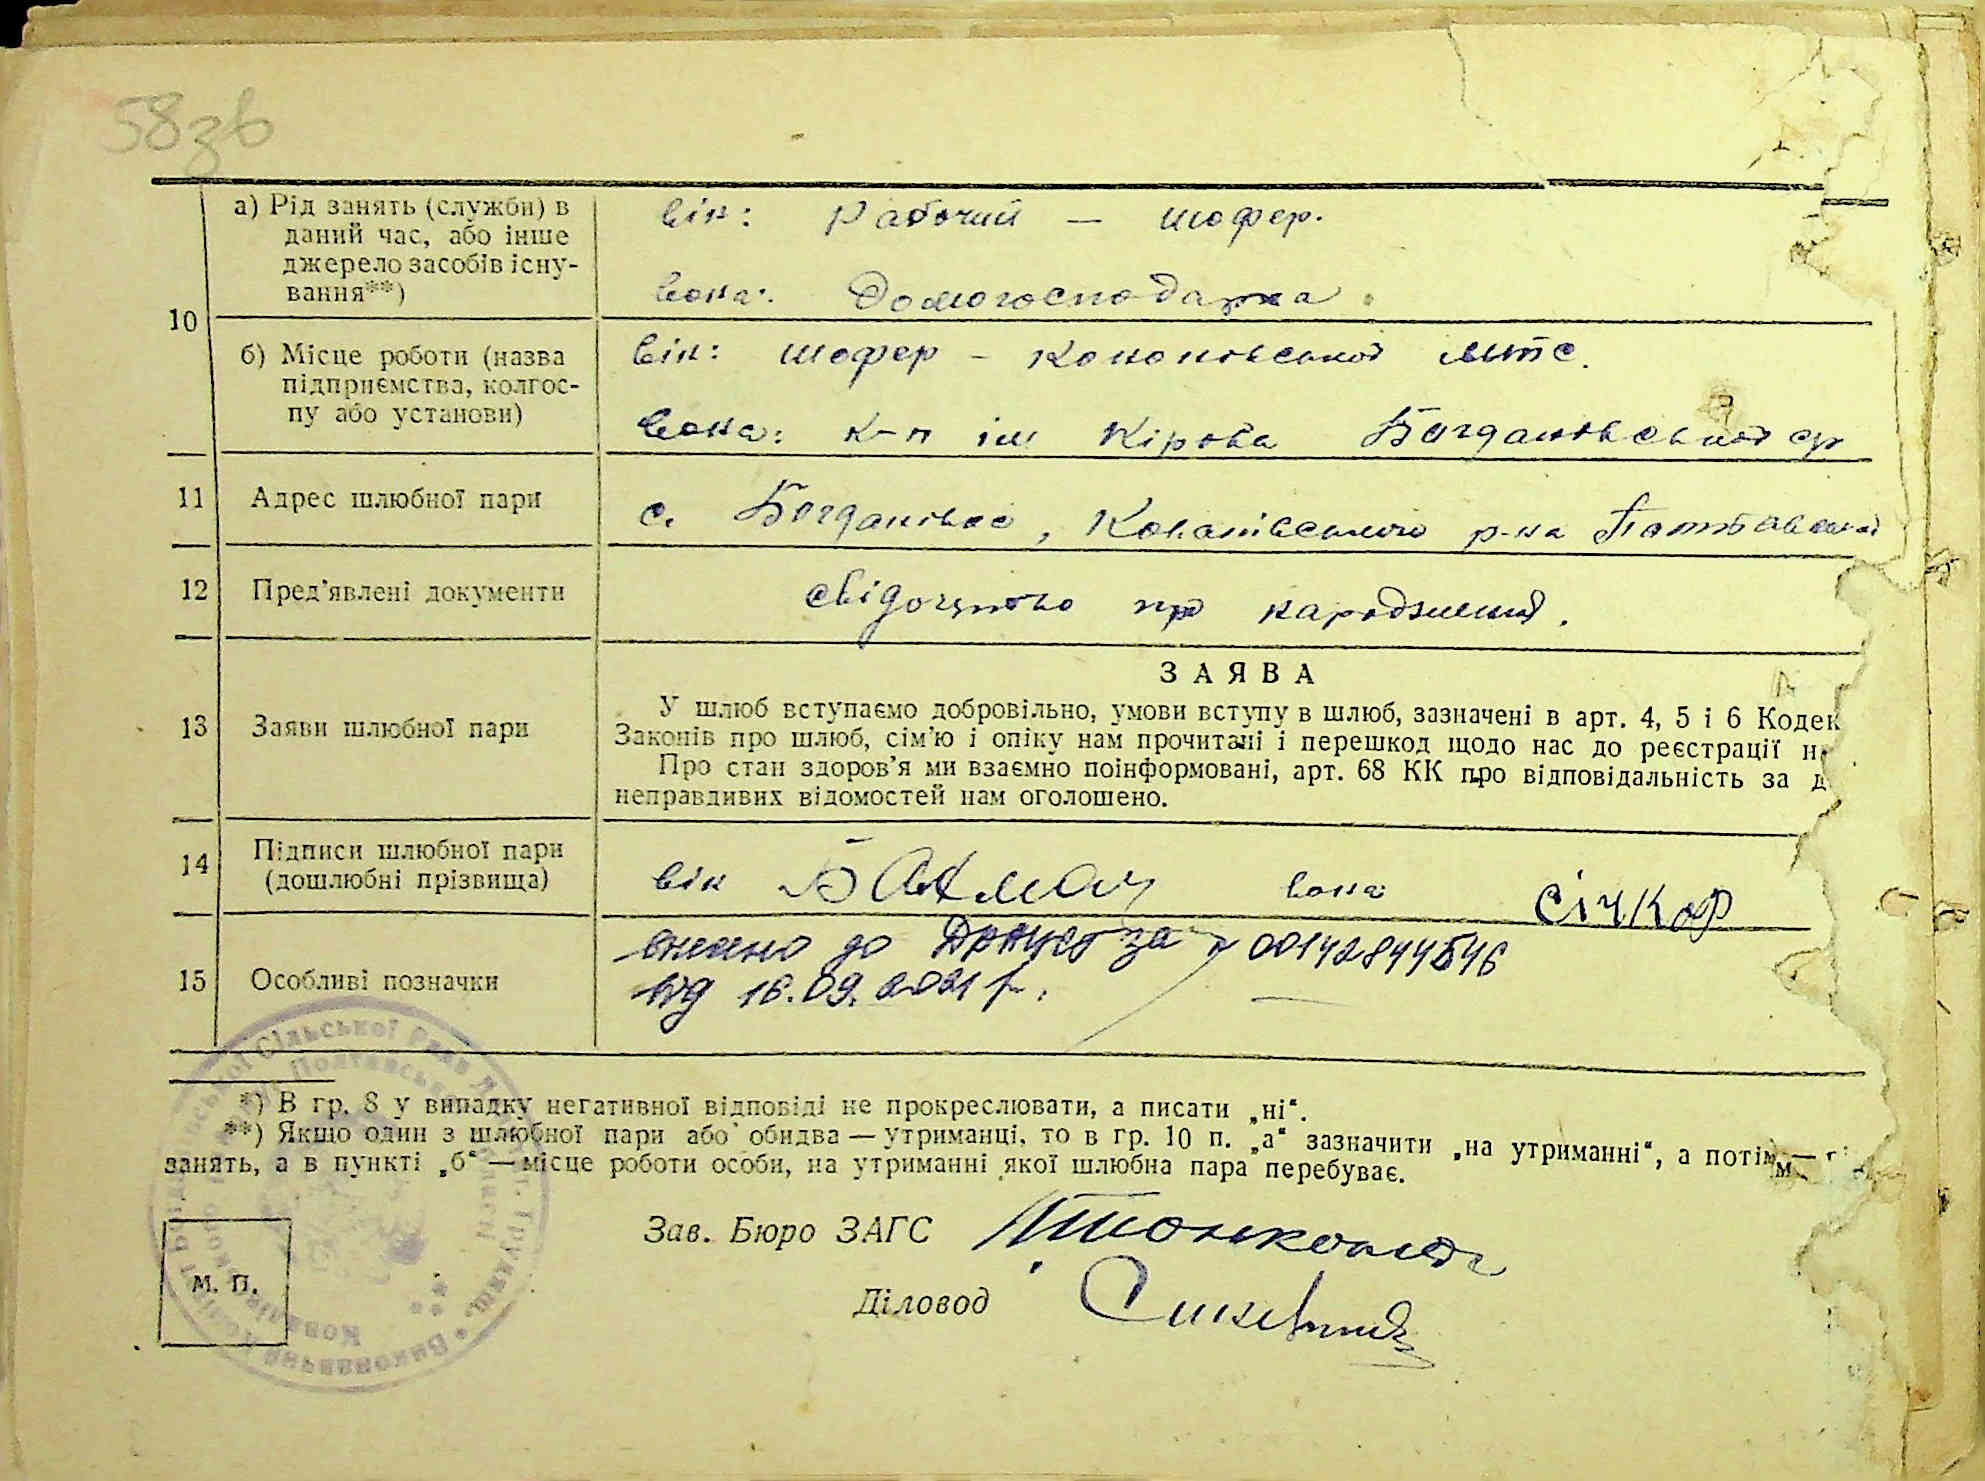 58зв
а) Рід занять (служби) в
даний час, або інше
джерело засобів існу-
вання**)
він: Рабочий — шофер.
вона: Домогосподарка.
10
б) Місце роботи (назва
підприємства, колгос-
пу або установи)
він: шофер - Кононовської МТС.
вона: к-п ім Кірова Богданівської ср
11 Адрес шлюбної пари
с. Богданівка, р-на
12 Пред'явлені документи
свідоцтво про народження.
13 Заяви шлюбної пари
ЗАЯВА
У шлюб вступаємо добровільно, умови вступу в шлюб, зазначені в арт. 4, 5 і 6 Кодек
Законів про шлюб, сім'ю і опіку нам прочитані і перешкод щодо нас до реєстрації н
Про стан здоров'я ми взаємно поінформовані, арт. 68 КК про відповідальність за д
неправдивих відомостей нам оголошено.
14 Підписи шлюбної пари
(дошлюбні прізвища)
він вона Січкар
15 Особливі позначки
внесено до ДРАЦСГ за № 00142844546
від 16.09.2021 р.
*) В гр. 8 у випадку негативної відповіді не прокреслювати, а писати „ні“.
**) Якщо один з шлюбної пари або обидва — утриманці, то в гр. 10 п. „а“ зазначити „на утриманні“, а потім —
занять, а в пункті „б“ — місце роботи особи, на утриманні якої шлюбна пара перебуває.
Зав. Бюро ЗАГС
Діловод
М. П.